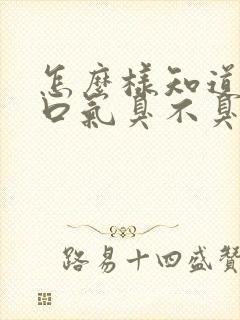 怎麼樣知道
口氣臭不臭
路易十四盛贊